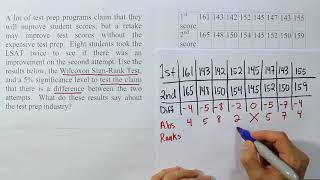 A lot of test prep programs claim that they
will improve student scores, but a retake
may improve test scores without the
expensive test prep. Eight students took the
LSAT twice to see if there was an
improvement on the second attempt. Use the
results below, the Wilcoxon Sign-Rank Test,
and a 5% significance level to test the claim
that there is a difference between the two
attempts. What do these results say about
the test prep industry?
1st score 161 143 142 152 145 147 143 155
2nd score 165 148 150 154 145 152 150 159
1st 161 143 142 152 145 147 143 155
2nd 165 148 150 154 145 152 150 159
Diff -4 -5 -8 -2 0 -5 -7 -4
Abs 4 5 8 2 X 5 7 4
Ranks